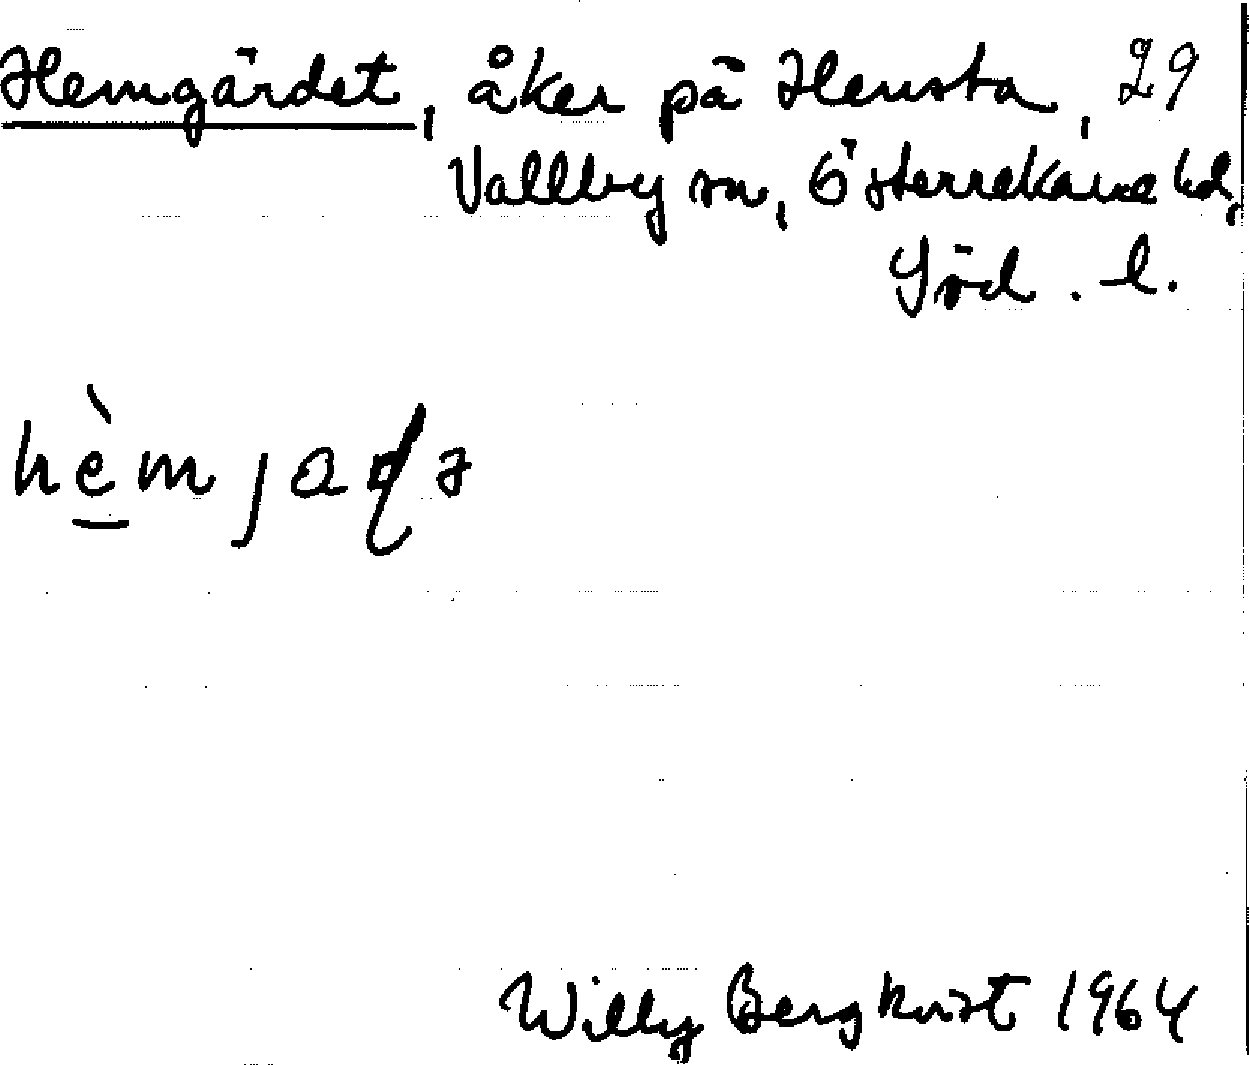 Hemgärdet, åker på Hensta, 29
Vallby sn, Österrekarne hd,
Söd. l.
Willy Bergkvist 1964